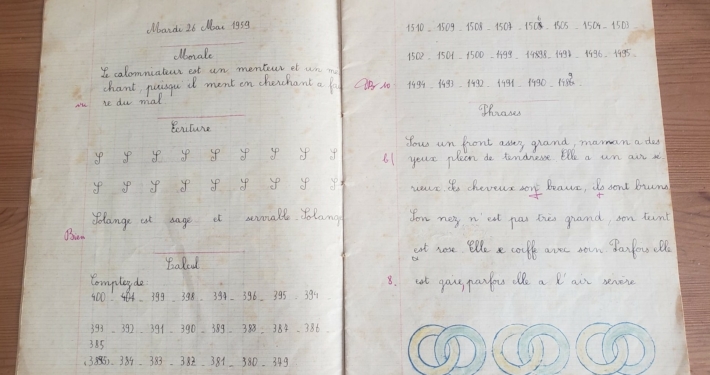 Mardi 26 Mai 1959
Morale
Le calomniateur est un menteur et un mé
chant, puisqu'il ment en cherchant à fai
re du mal.
vu
Ecriture
S S S S S S S S
S S S S S S S S
Solange est sage et serviable. Solange
Bien
Calcul
Comptez de
400 - 401 - 399 - 398 - 397 - 396 - 395 - 394 -
393 - 392 - 391 - 390 - 389 - 388 - 387 - 386 -
385
385 - 384 - 383 - 382 - 381 - 380 - 379
1510 - 1509 - 1508 - 1507 - 1506 - 1505 - 1504 - 1503
1502 - 1501 - 1500 - 1499 - 1498 - 1497 - 1496 - 1495
TB 10 1494 - 1493 - 1492 - 1491 - 1490 - 1489
Phrases
Sous un front assez grand, maman a des
6 yeux plein de tendresse. Elle a un air sé
rieux. Les cheveux son beaux, ils sont bruns
Son nez n'est pas très grand, son teint
est rose. Elle se coiffe avec soin Parfois elle
8 est gaie, parfois elle a l'air sévère